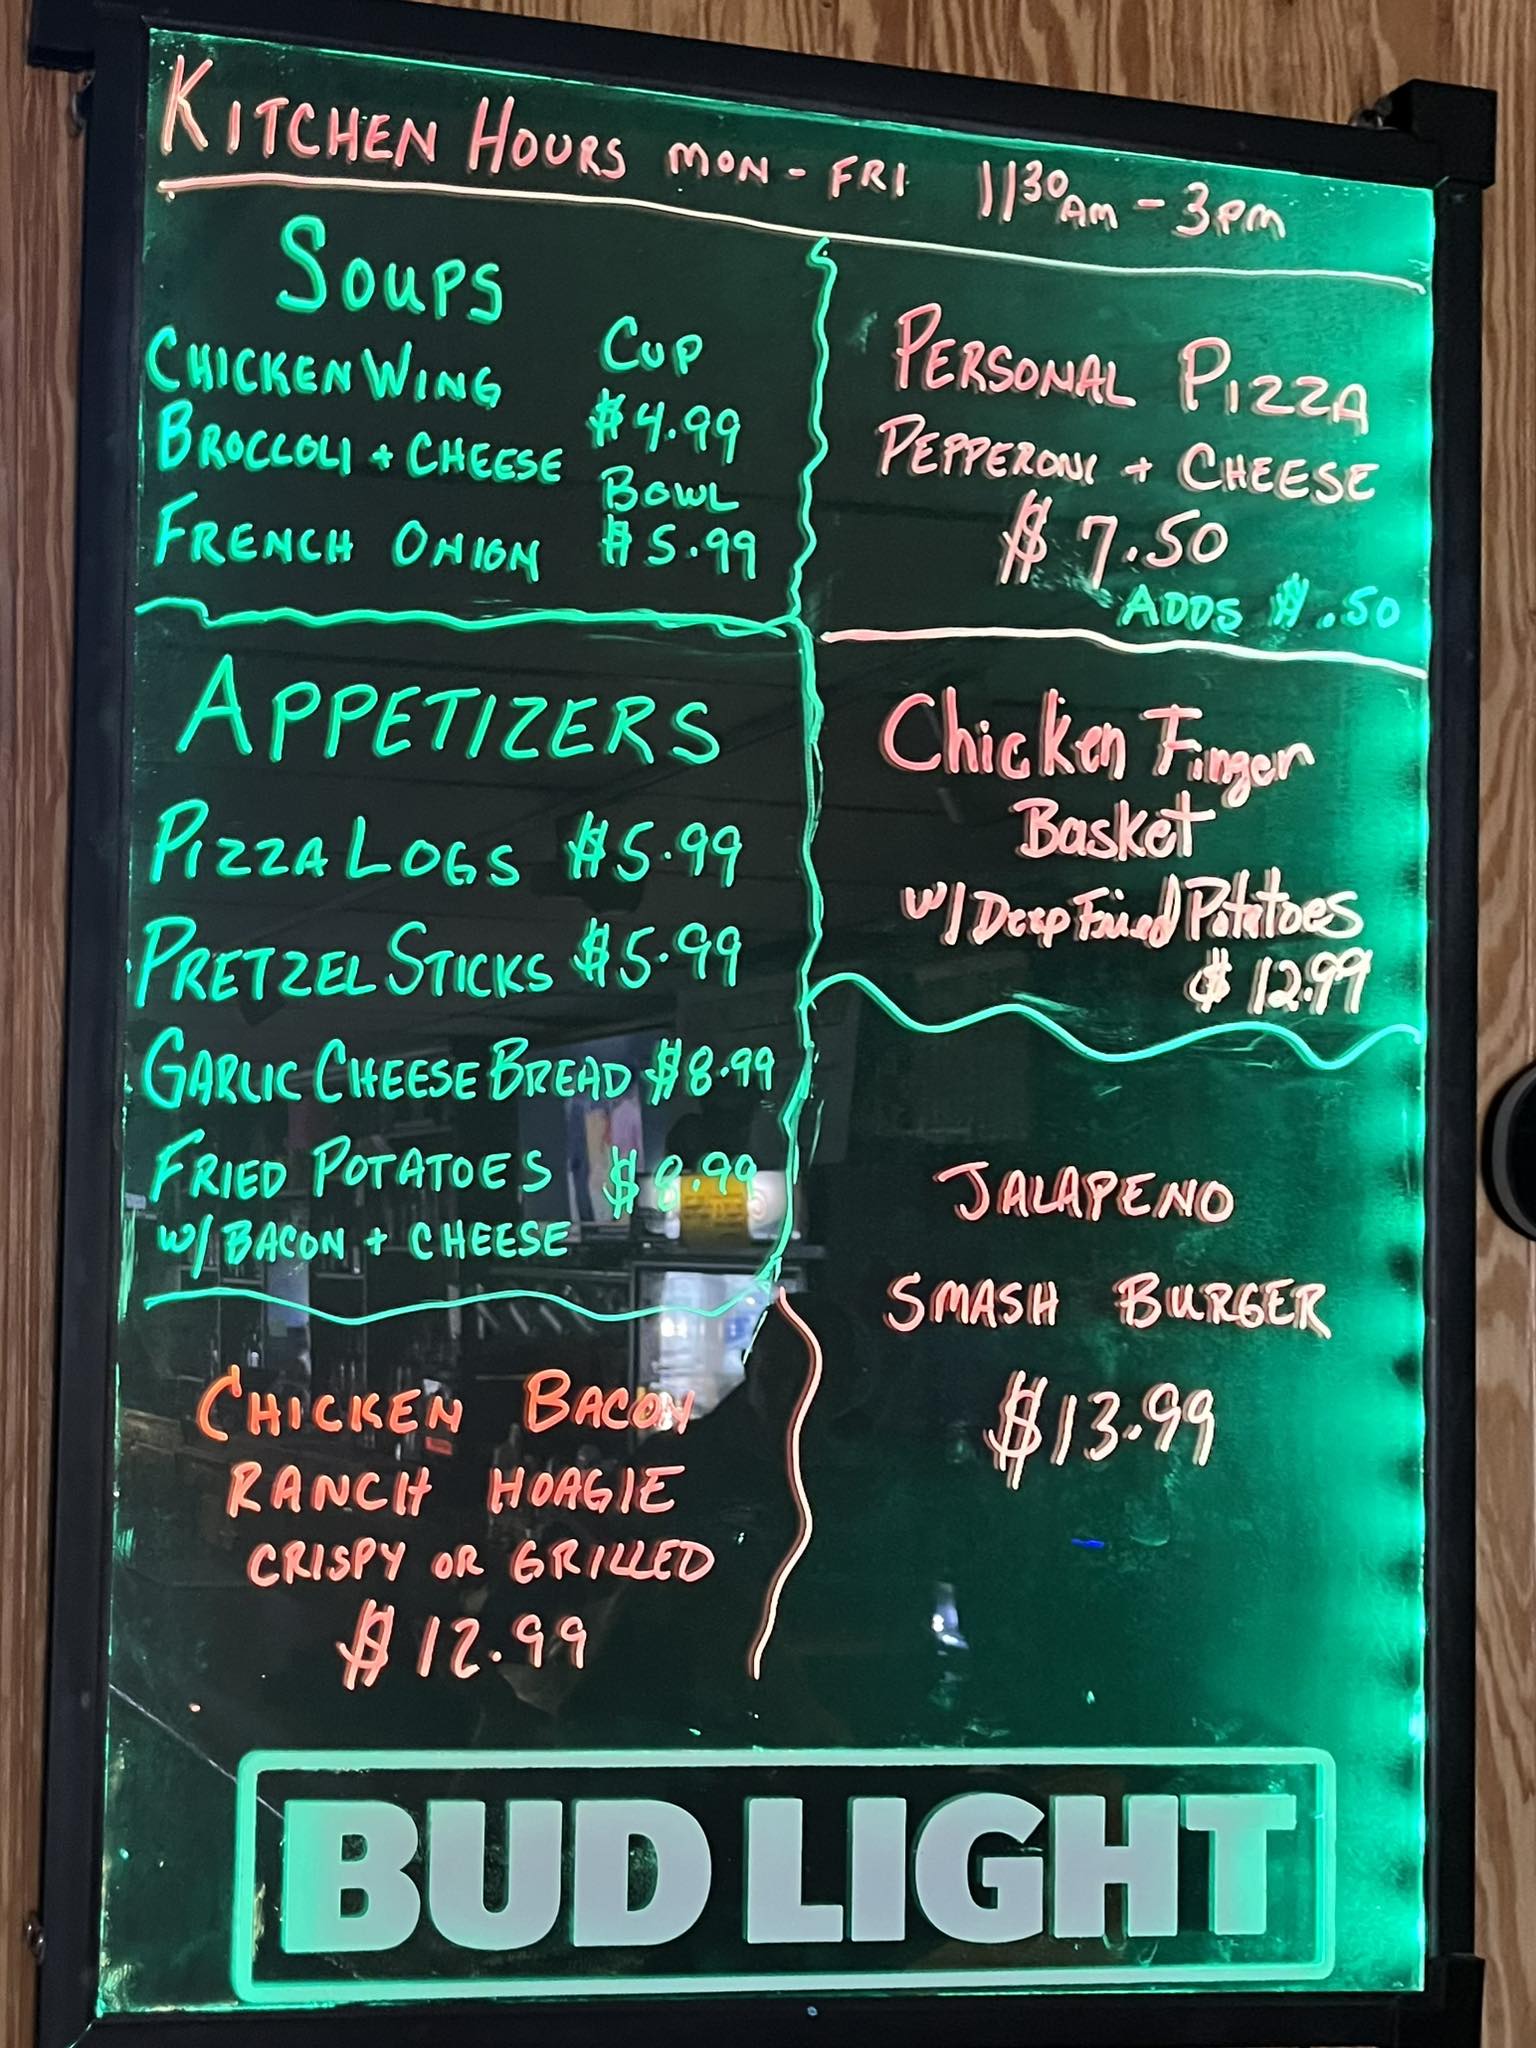 KITCHEN HOURS MON - FRI 11³⁰AM - 3PM
SOUPS
CHICKEN WING
BROCCOLI + CHEESE
FRENCH ONION
CUP
$4.99
BOWL
$5.99
PERSONAL PIZZA
PEPPERONI + CHEESE
$7.50
ADDS $.50
APPETIZERS
PIZZA LOGS $5.99
PRETZEL STICKS $5.99
GARLIC CHEESE BREAD $8.99
FRIED POTATOES $8.99
W/ BACON + CHEESE
Chicken Finger
Basket
w/ Deep Fried Potatoes
$12.99
CHICKEN BACON
RANCH HOAGIE
CRISPY OR GRILLED
$12.99
JALAPENO
SMASH BURGER
$13.99
BUD LIGHT